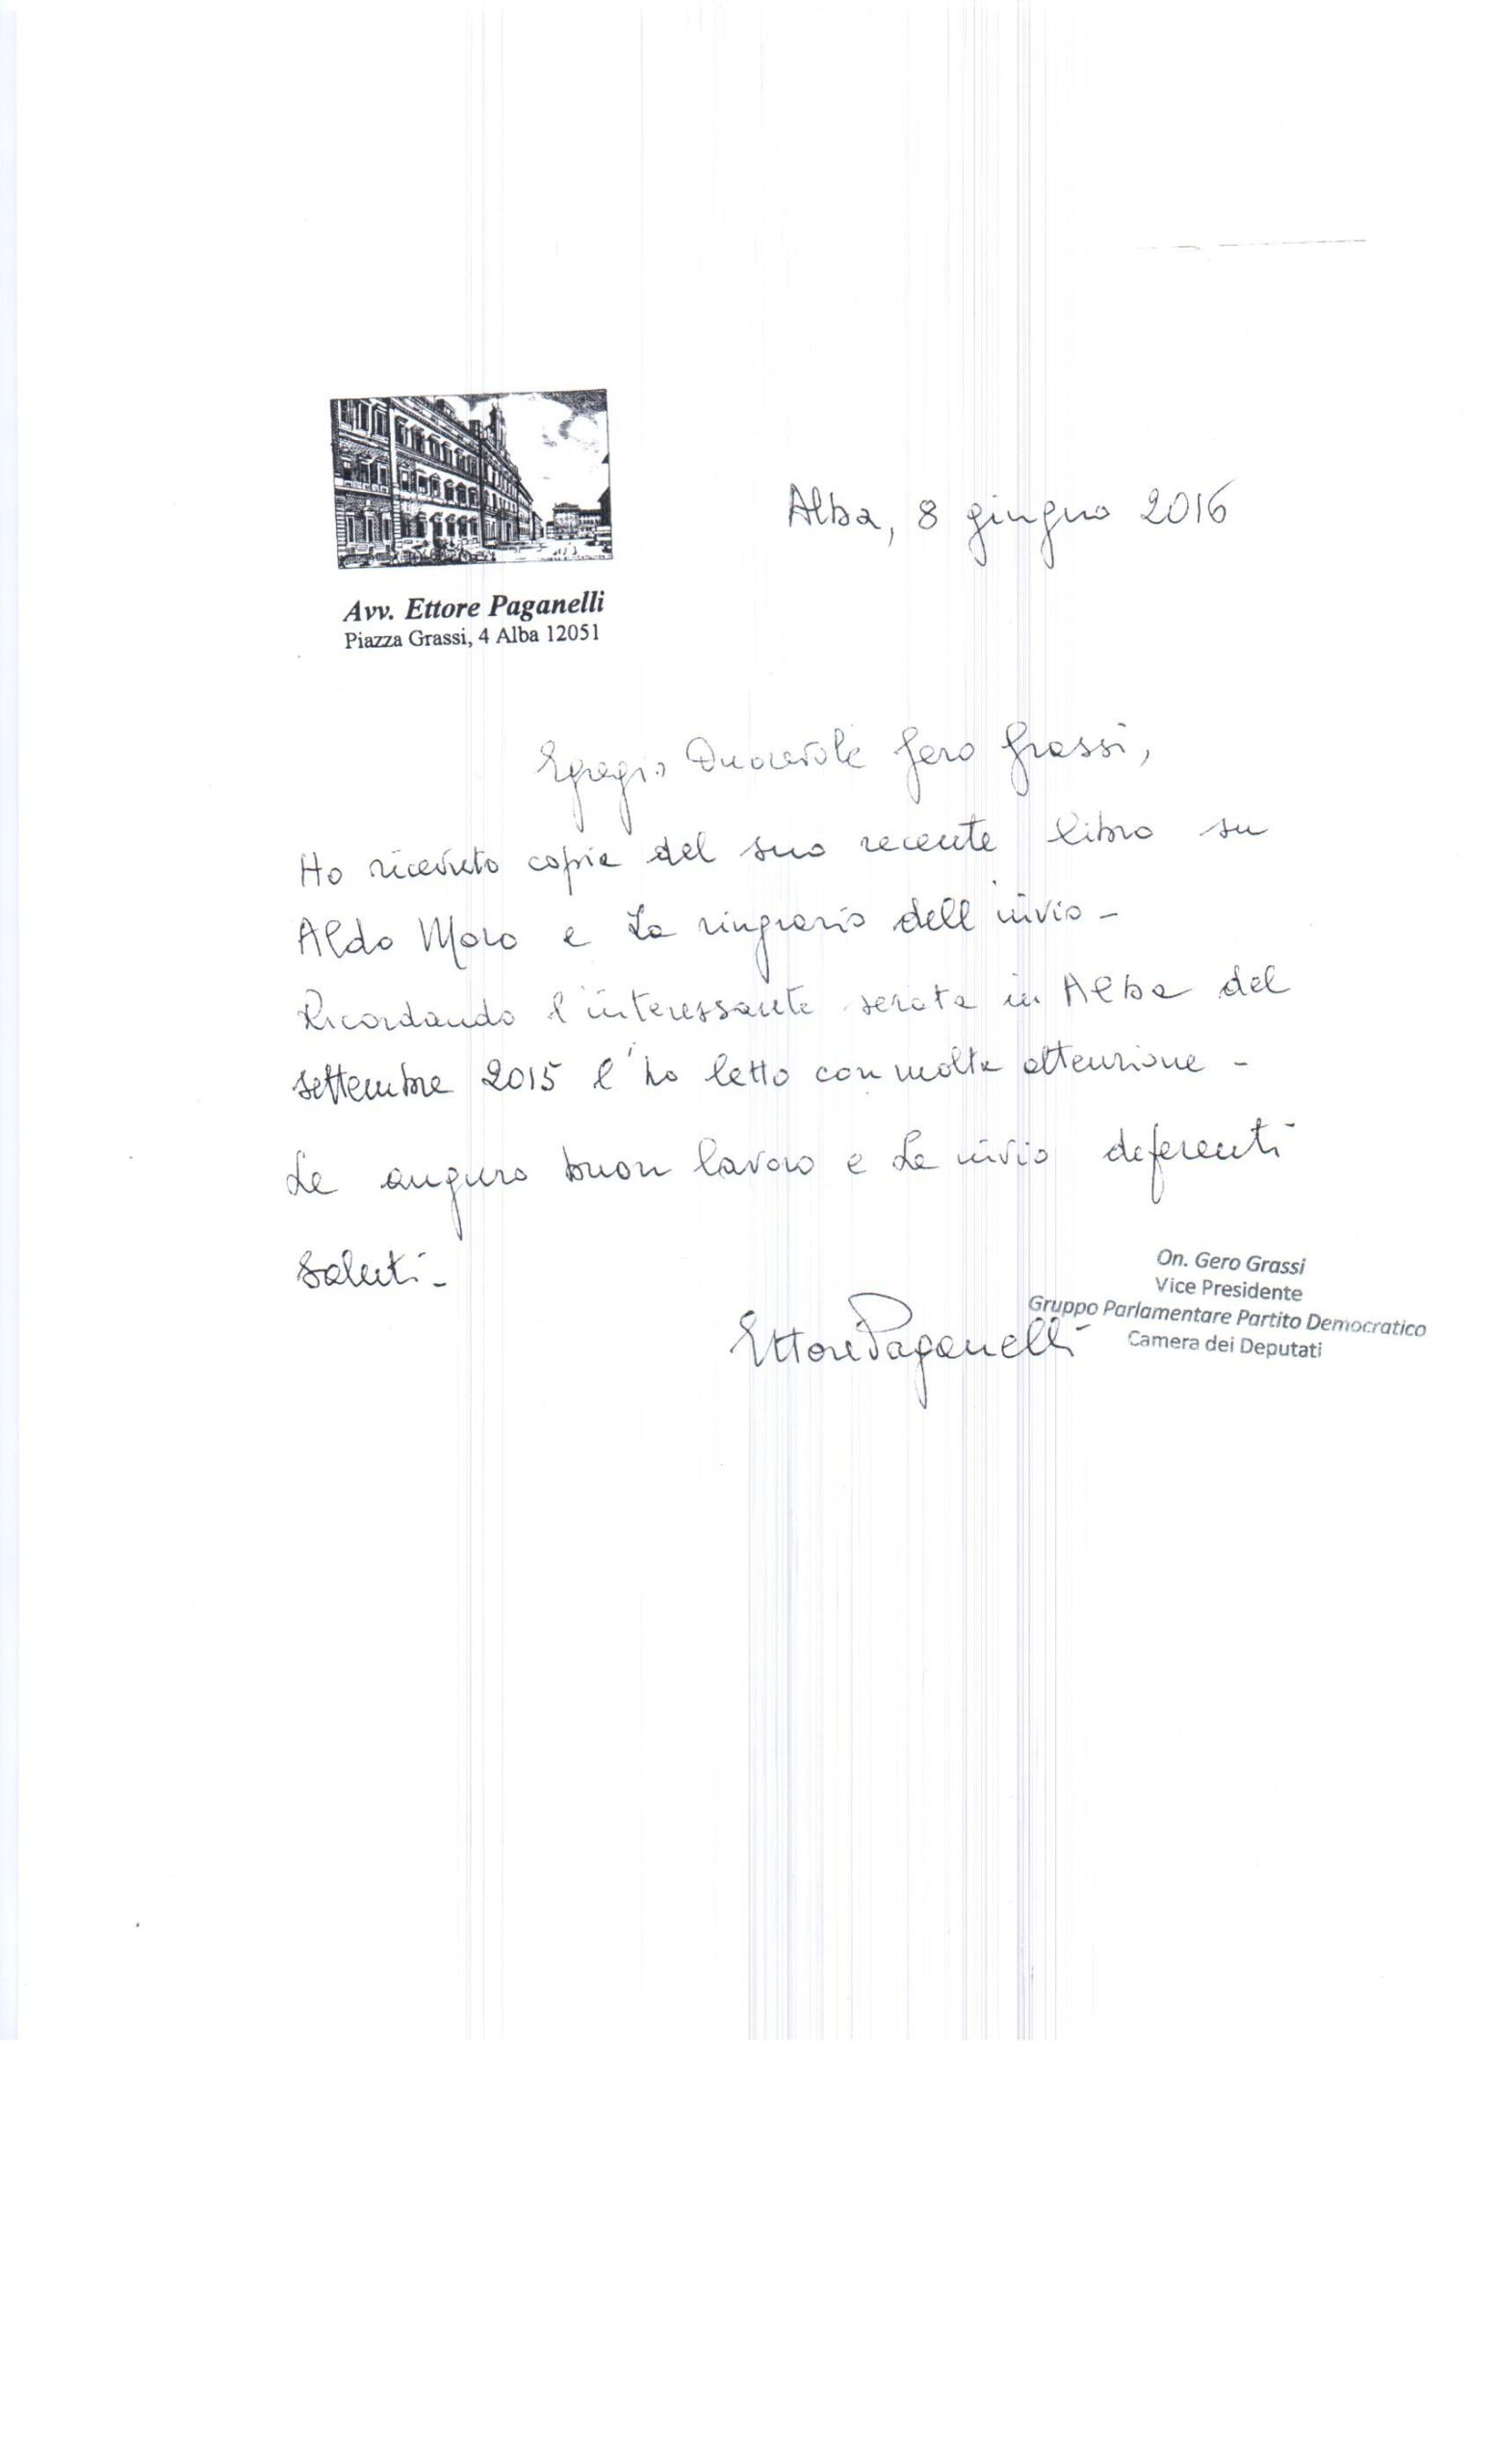 Alba, 8 giugno 2016
Avv. Ettore Paganelli
Piazza Grassi, 4 Alba 12051
Egregio Onorevole Gero Grassi,
Ho ricevuto copia del suo recente libro su
Aldo Moro e La ringrazio dell'invio -
Ricordando l'interessante serata in Alba del
settembre 2015 l'ho letto con molta attenzione -
Le auguro buon lavoro e Le invio deferenti
saluti -
On. Gero Grassi
Vice Presidente
Gruppo Parlamentare Partito Democratico
Camera dei Deputati
Ettore Paganelli